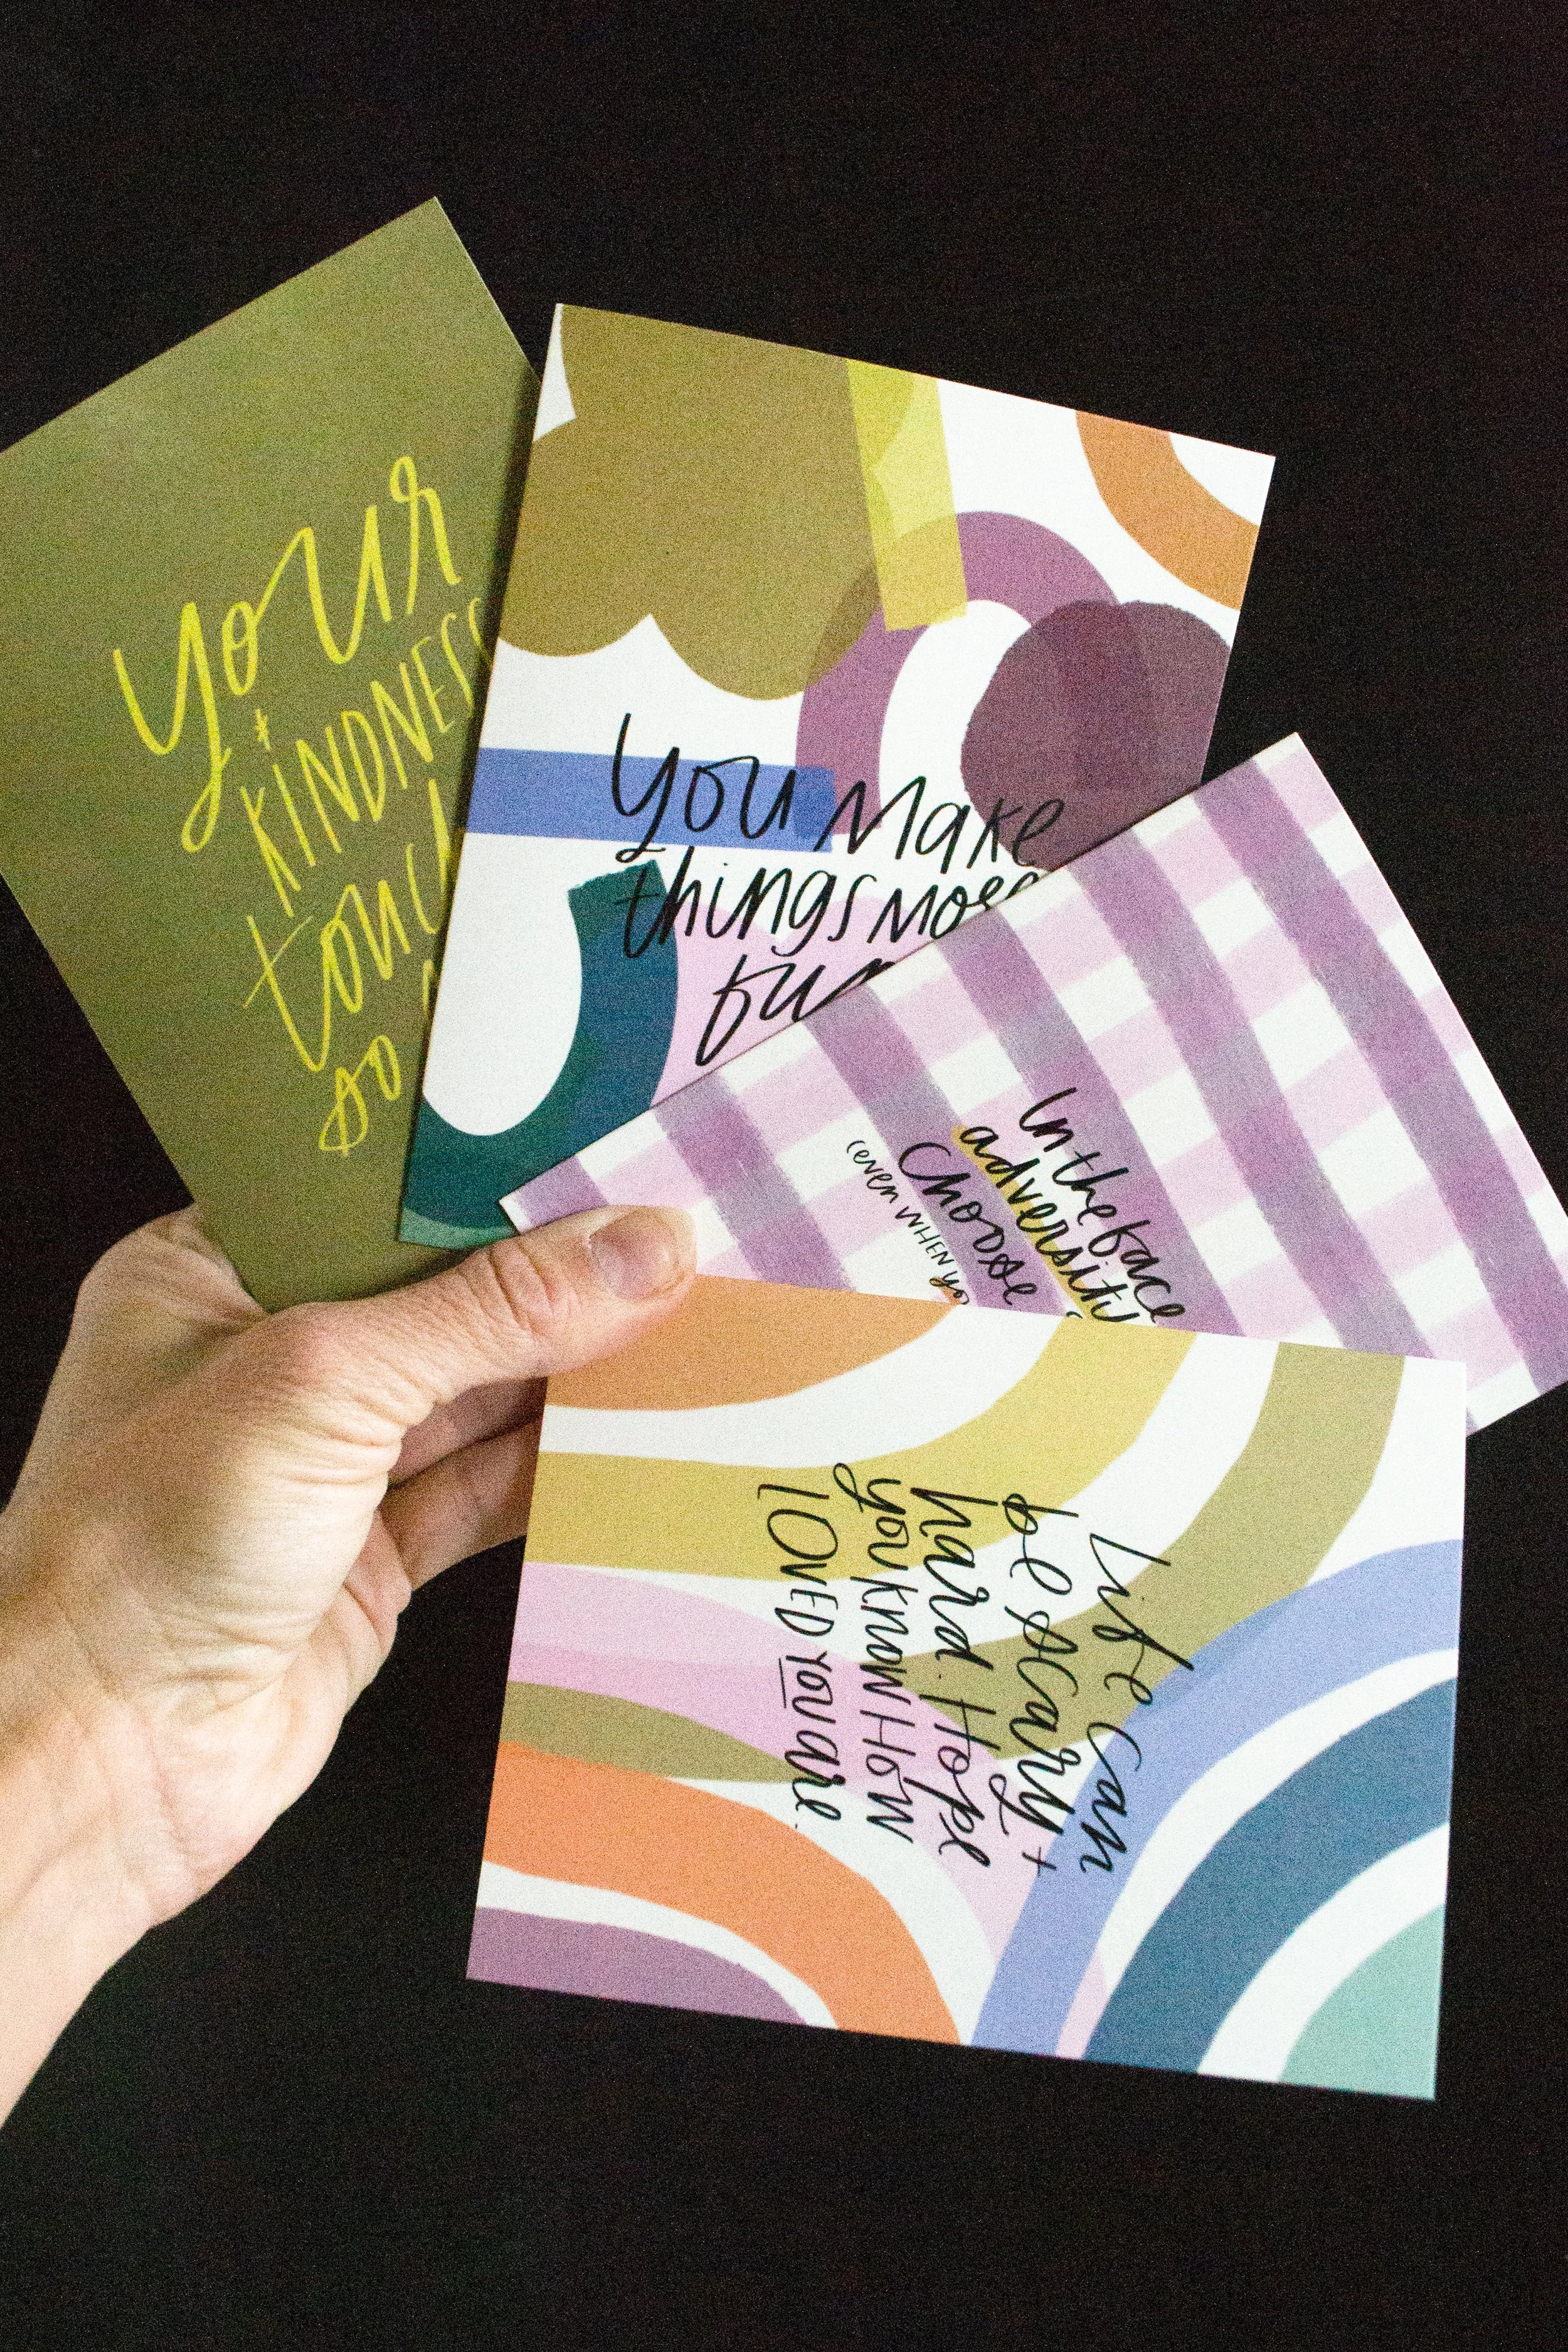 your
KINDNESS
so
You make
things more
fun
In the face
adversity
Choose
(even WHEN
Life can
be scary +
hard. Hope
you know HOW
LOVED you are.